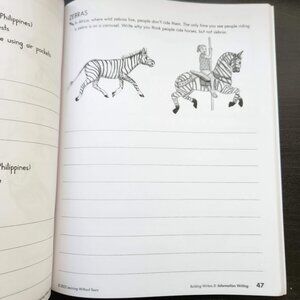 Philippines)
sts
e using air pockets
Philippines)
ZEBRAS
In Africa, where wild zebras live, people don't ride them. The only time you see people riding
a zebra is on a carousel. Write why you think people ride horses, but not zebras.
© 2022 Learning Without Tears
Building Writers D: Information Writing 47